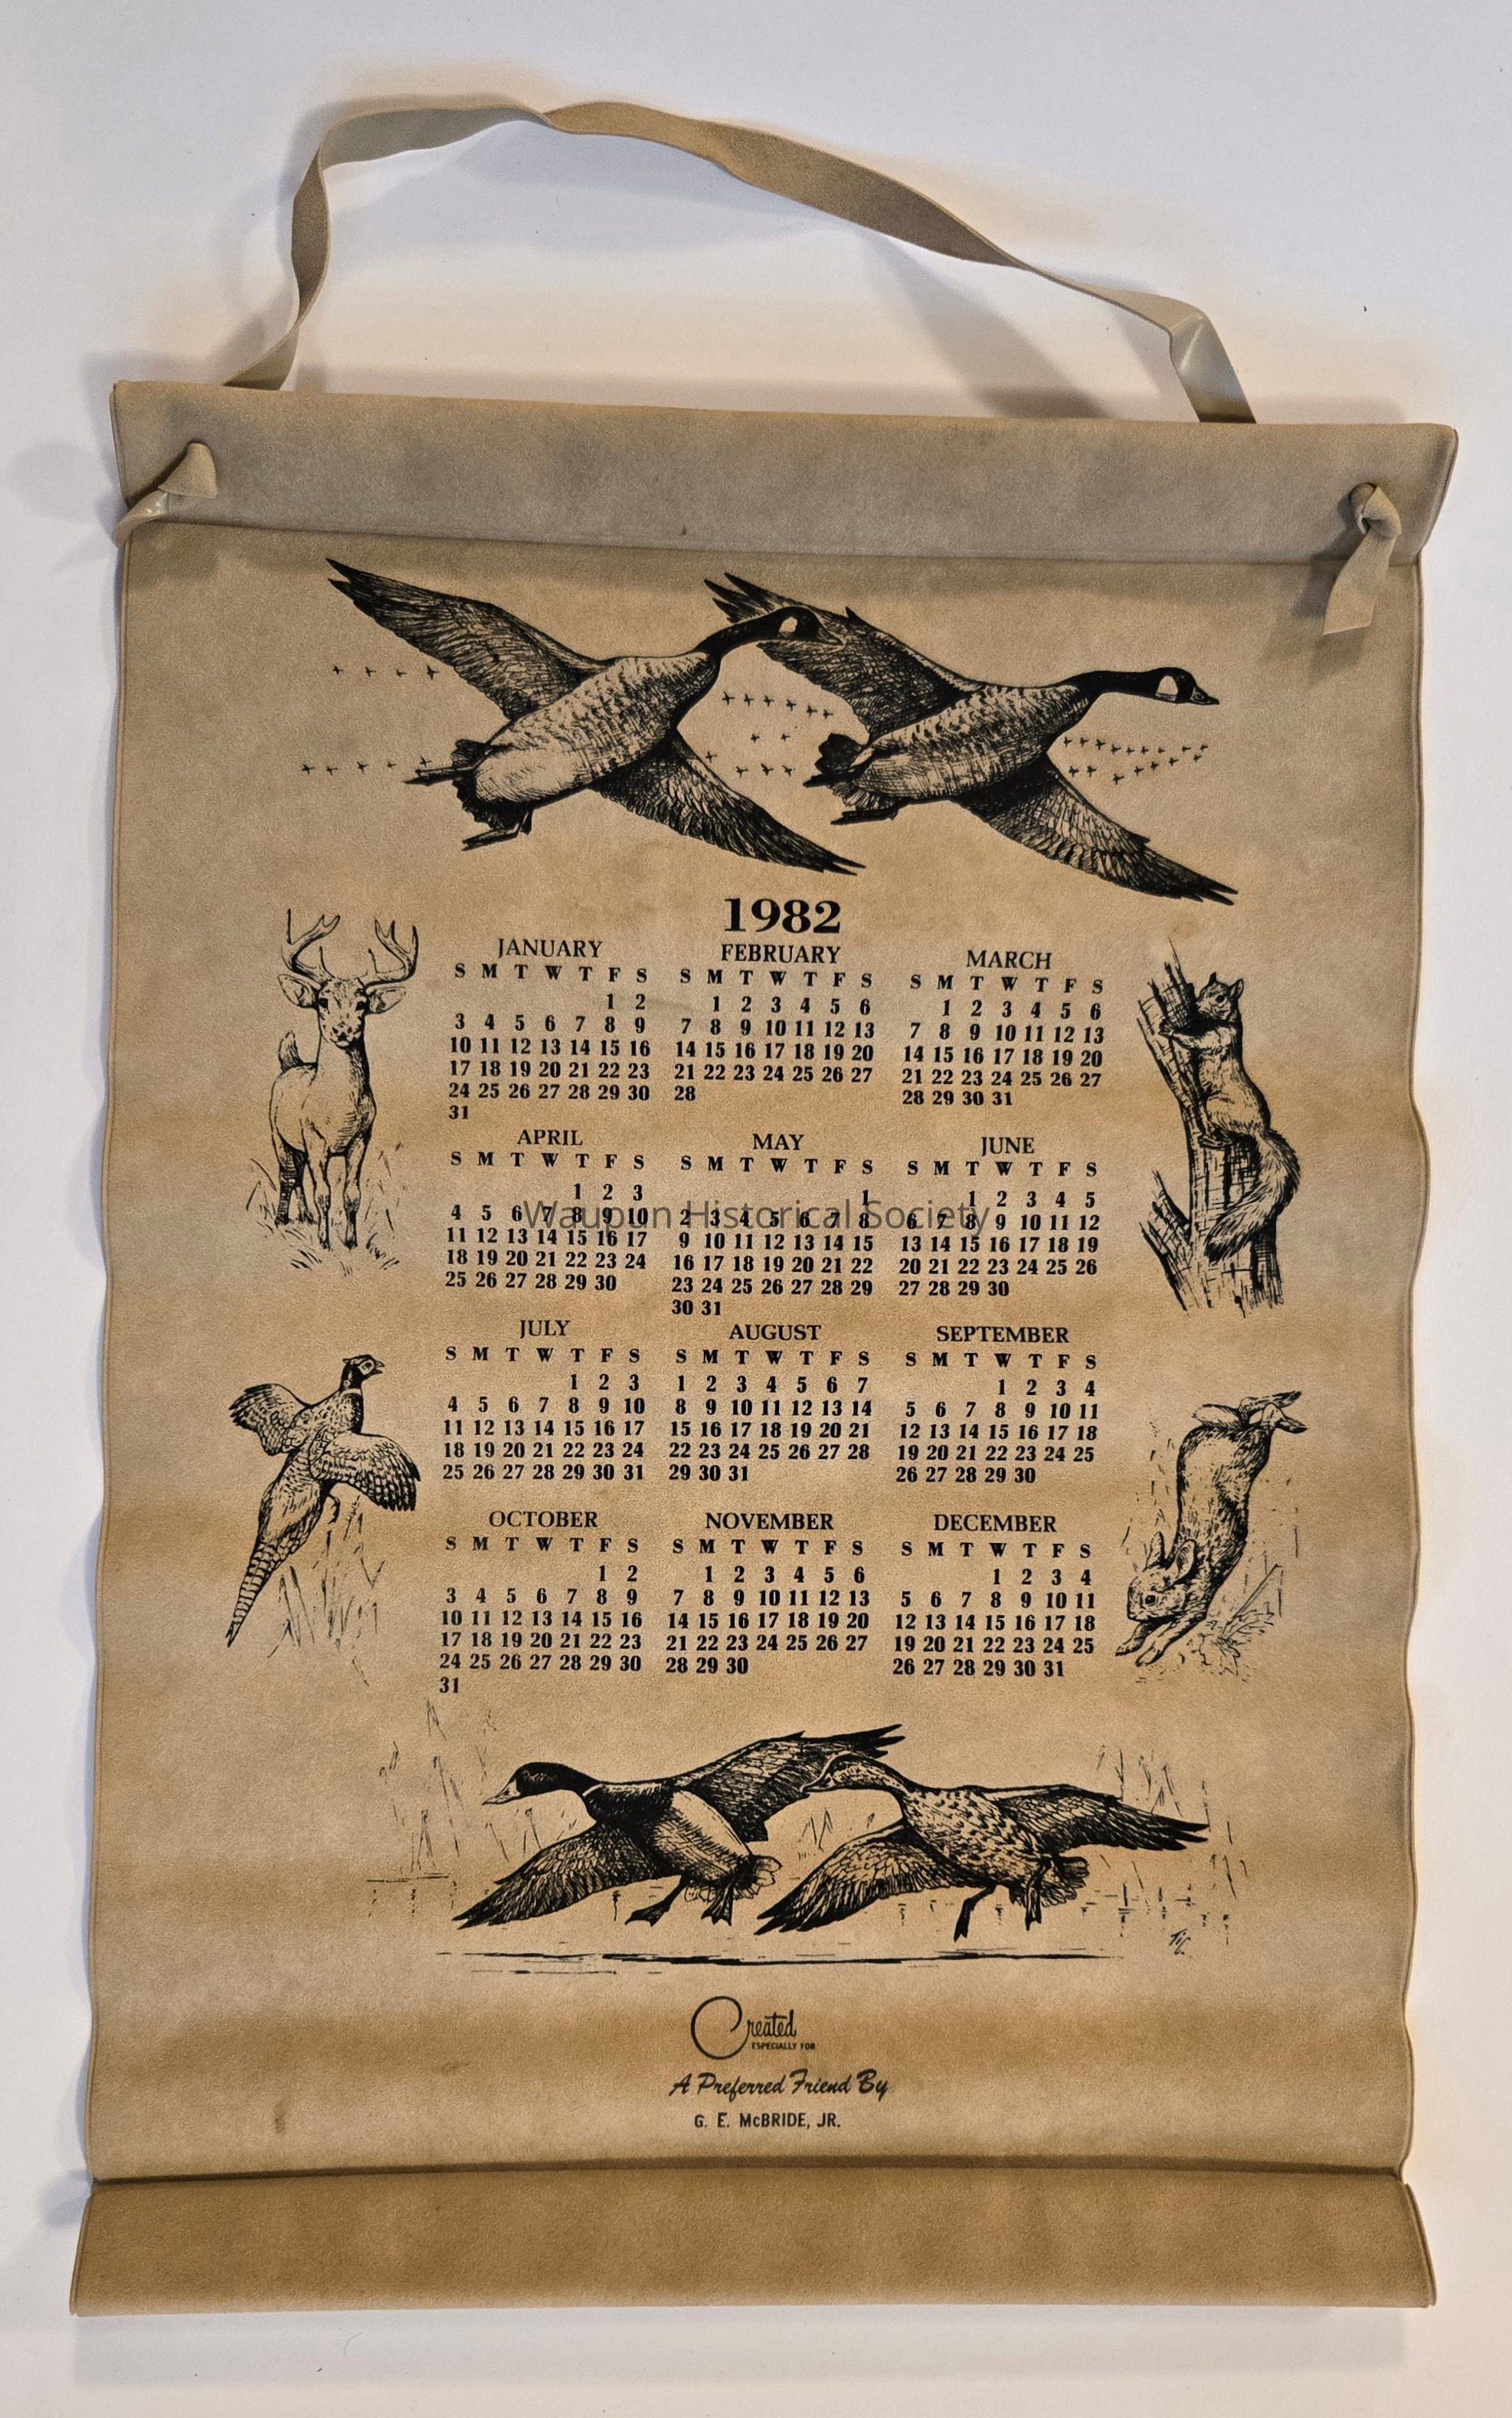 1982
JANUARY FEBRUARY MARCH
S M T W T F S S M T W T F S S M T W T F S
1 2 1 2 3 4 5 6 1 2 3 4 5 6
3 4 5 6 7 8 9 7 8 9 10 11 12 13 7 8 9 10 11 12 13
10 11 12 13 14 15 16 14 15 16 17 18 19 20 14 15 16 17 18 19 20
17 18 19 20 21 22 23 21 22 23 24 25 26 27 21 22 23 24 25 26 27
24 25 26 27 28 29 30 28 28 29 30 31
31
APRIL MAY JUNE
S M T W T F S S M T W T F S S M T W T F S
1 2 3 1 1 2 3 4 5
Waupun Historical Society
4 5 6 7 8 9 10 2 3 4 5 6 7 8 6 7 8 9 10 11 12
11 12 13 14 15 16 17 9 10 11 12 13 14 15 13 14 15 16 17 18 19
18 19 20 21 22 23 24 16 17 18 19 20 21 22 20 21 22 23 24 25 26
25 26 27 28 29 30 23 24 25 26 27 28 29 27 28 29 30
30 31
JULY AUGUST SEPTEMBER
S M T W T F S S M T W T F S S M T W T F S
1 2 3 1 2 3 4 5 6 7 1 2 3 4
4 5 6 7 8 9 10 8 9 10 11 12 13 14 5 6 7 8 9 10 11
11 12 13 14 15 16 17 15 16 17 18 19 20 21 12 13 14 15 16 17 18
18 19 20 21 22 23 24 22 23 24 25 26 27 28 19 20 21 22 23 24 25
25 26 27 28 29 30 31 29 30 31 26 27 28 29 30
OCTOBER NOVEMBER DECEMBER
S M T W T F S S M T W T F S S M T W T F S
1 2 1 2 3 4 5 6 1 2 3 4
3 4 5 6 7 8 9 7 8 9 10 11 12 13 5 6 7 8 9 10 11
10 11 12 13 14 15 16 14 15 16 17 18 19 20 12 13 14 15 16 17 18
17 18 19 20 21 22 23 21 22 23 24 25 26 27 19 20 21 22 23 24 25
24 25 26 27 28 29 30 28 29 30 26 27 28 29 30 31
31
Created
ESPECIALLY FOR
A Preferred Friend By
G. E. McBRIDE, JR.